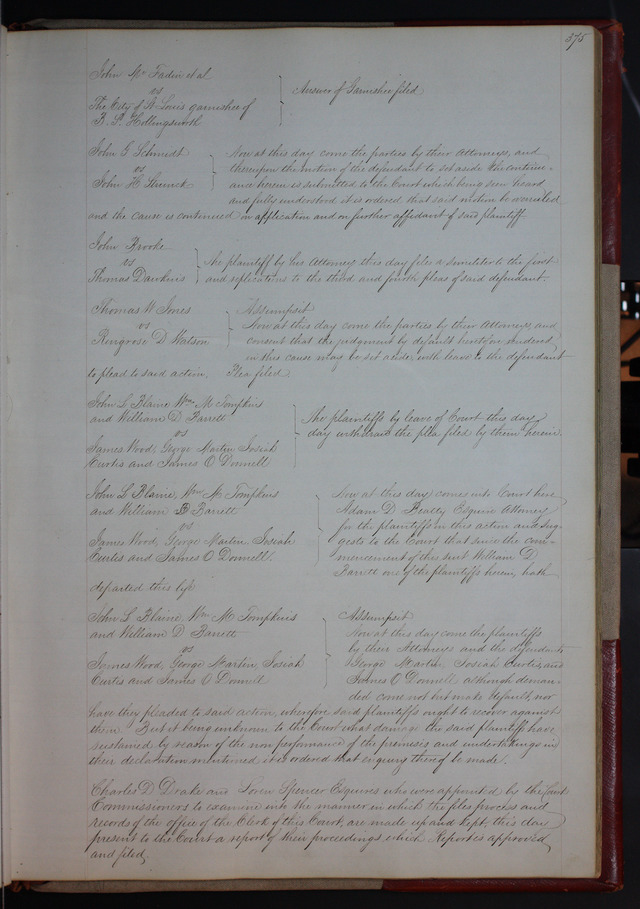 375
John Mc Fadin et al
vs
The City of St Louis garnishee of
B. P. Hollingsworth
Answer of Garnishee filed
John G Schmidt
vs
John H Strunck
Now at this day come the parties by their Attorneys, and
thereupon the motion of the defendant to set aside the continu-
ance herein is submitted to the Court which being seen heard
and fully understood it is ordered that said motion be overruled
and the cause is continued on application and on further affidavit of said plaintiff.
John Brooke
vs
Thomas Dawkins
The plaintiff by his Attorney this day files a similiter to the first
and replications to the third and fourth pleas of said defendant.
Thomas W Jones
vs
Ringrose D Watson
Assumpsit
Now at this day come the parties by their Attorneys, and
consent that the judgment by default heretofore rendered
in this cause may be set aside with leave to the defendant
to plead to said action. Plea filed.
John L Blaine, Wm M Tompkins
and William D Barrett
vs
James Wood, George Martin, Josiah
Curtis and James O Donnell
The plaintiffs by leave of Court this day
day withdraw the plea filed by them herein.
John L Blaine, Wm M Tompkins
and William D Barrett
vs
James Wood, George Martin, Josiah
Curtis and James O Donnell
Now at this day comes into Court here
Adam D Beatty Esquire Attorney
for the plaintiffs in this action and sug-
gests to the Court that since the com-
mencement of this suit William D
Barrett one of the plaintiffs herein, hath
departed this life
John L Blaine, Wm M Tompkins
and William D Barrett
vs
James Wood, George Martin, Josiah
Curtis and James O Donnell
Assumpsit
Now at this day come the plaintiffs
by their Attorneys and the defendants
George Martin, Josiah Curtis, and
James O Donnell although deman-
ded come not but make default, nor
have they pleaded to said action, wherefore said plaintiffs ought to recover against
them. But it being unknown to the Court what damage the said plaintiffs have
sustained by reason of the non performance of the premises and undertakings in
their declaration mentioned, it is ordered that enquiry thereof be made.
Charles D Drake and Loren Spencer Esquires who were appointed by the Court
Commissioners to examine into the manner in which the files process and
records of the office of the Clerk of this Court, are made up and kept, this day
present to the Court a report of their proceedings, which Report is approved
and filed.